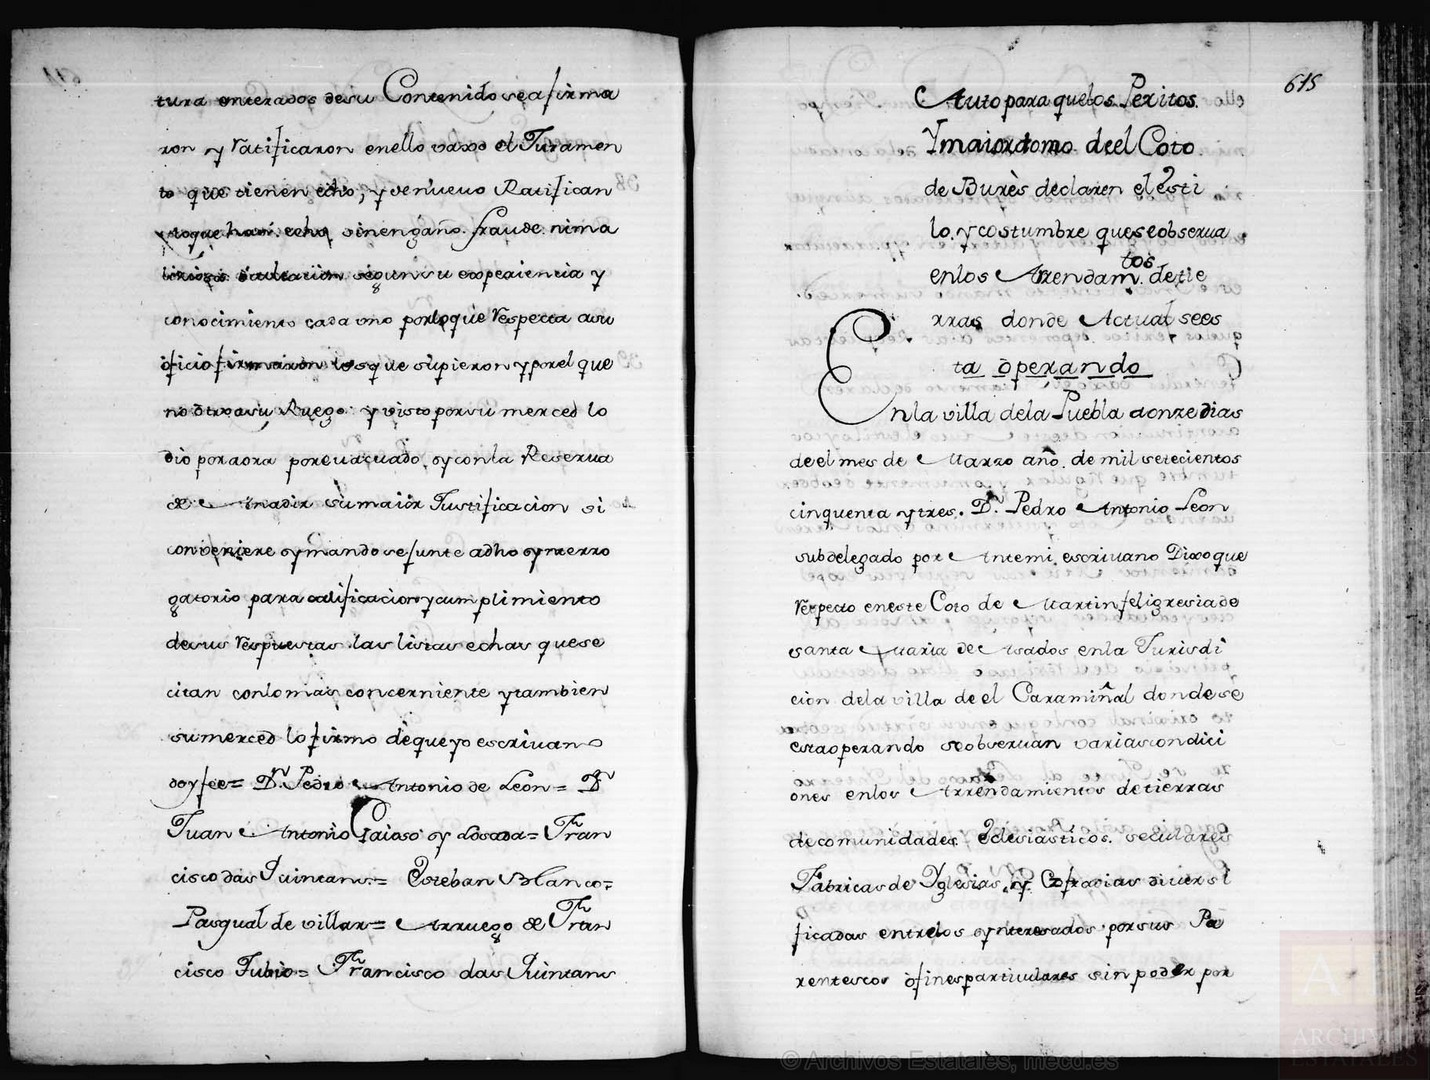 tura enterados desu Contenido se afirma
ron y Ratificaron enello vaxo el Juramen
to que tienen echo, y denuevo Ratifican
loque han echo, sinengaño fraude nima
segunsu experiencia y
conocimiento cada uno porloque Respecta asu
oficio firmaron losque supieron yporel que
no otro asu Ruego: y visto porsu merced lo
dio poraora porevacuado, yconla Reserva
de Anadir sumaior Justificacion si
conveniere ymando se junte adho ynterro
gatorio para calificacion ycumplimiento
desus Respuestas las listas echas quese
citan conlomas concerniente ytambien
sumerced lo firmo dequeyo escrivano
doyfee= Dn. Pedro Antonio de Leon= Dn
Juan Antonio Gaioso y Losada= Fran
cisco das Quintans= Esteban Blanco=
Pasqual de villar= Arruego de Fran
cisco Tubio= Francisco das Quintans
615
Auto para quelos Peritos.
Ymaiordomo deel Coto
de Burès declaren el esti
lo, y costumbre queseobserua
enlos Arrendamtos. detie
rras donde Actual sees
ta operando
Enla villa dela Puebla aonze dias
deel mes de Marzo año de mil setecientos
cinquenta ytres. Dn. Pedro Antonio Leon
subdelegado por Antemi escrivano Dixoque
Respecto eneste Coto de Martin feligresia de
santa Maria de Asados enla Jurisdi
cion dela villa deel Caramiñal dondese
estaoperando seobseruan variascondici
ones enlos Arrendamientos detierras
decomunidades Eclesiasticos. seculares
Fabricas de Yglesias, y Cofradias diversi
ficadas entrelos ynteresados porsus Pa
rentescos ofinesparticulares sin poder por
© Archivos Estatales, mecd.es
ARCHIVOS
ESTATALES